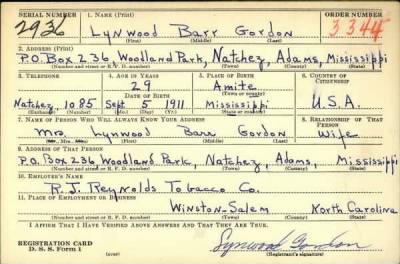 SERIAL NUMBER 1. NAME (Print) ORDER NUMBER
2936 Lynwood Barr Gordon 3344
(First) (Middle) (Last)
2. ADDRESS (Print)
P.O. Box 236 Woodland Park, Natchez, Adams, Mississippi
(Number and street or R. F. D. number) (Town) (County) (State)
3. TELEPHONE 4. AGE IN YEARS 5. PLACE OF BIRTH 6. COUNTRY OF CITIZENSHIP
29 Amite
DATE OF BIRTH (Town or county)
Natchez 1085 Sept 5 1911 Mississippi U.S.A.
(Exchange) (Number) (Mo.) (Day) (Yr.) (State or country)
7. NAME OF PERSON WHO WILL ALWAYS KNOW YOUR ADDRESS 8. RELATIONSHIP OF THAT PERSON
Mrs. Lynwood Barr Gordon Wife
(Mr., Mrs., Miss) (First) (Middle) (Last)
9. ADDRESS OF THAT PERSON
P.O. Box 236 Woodland Park, Natchez, Adams, Mississippi
(Number and street or R. F. D. number) (Town) (County) (State)
10. EMPLOYER'S NAME
R.J. Reynolds Tobacco Co.
11. PLACE OF EMPLOYMENT OR BUSINESS
Winston-Salem North Carolina
(Number and street or R. F. D. number) (Town) (County) (State)
I AFFIRM THAT I HAVE VERIFIED ABOVE ANSWERS AND THAT THEY ARE TRUE.
REGISTRATION CARD
D. S. S. Form 1 Lynwood Gordon
(over) (Registrant's signature)